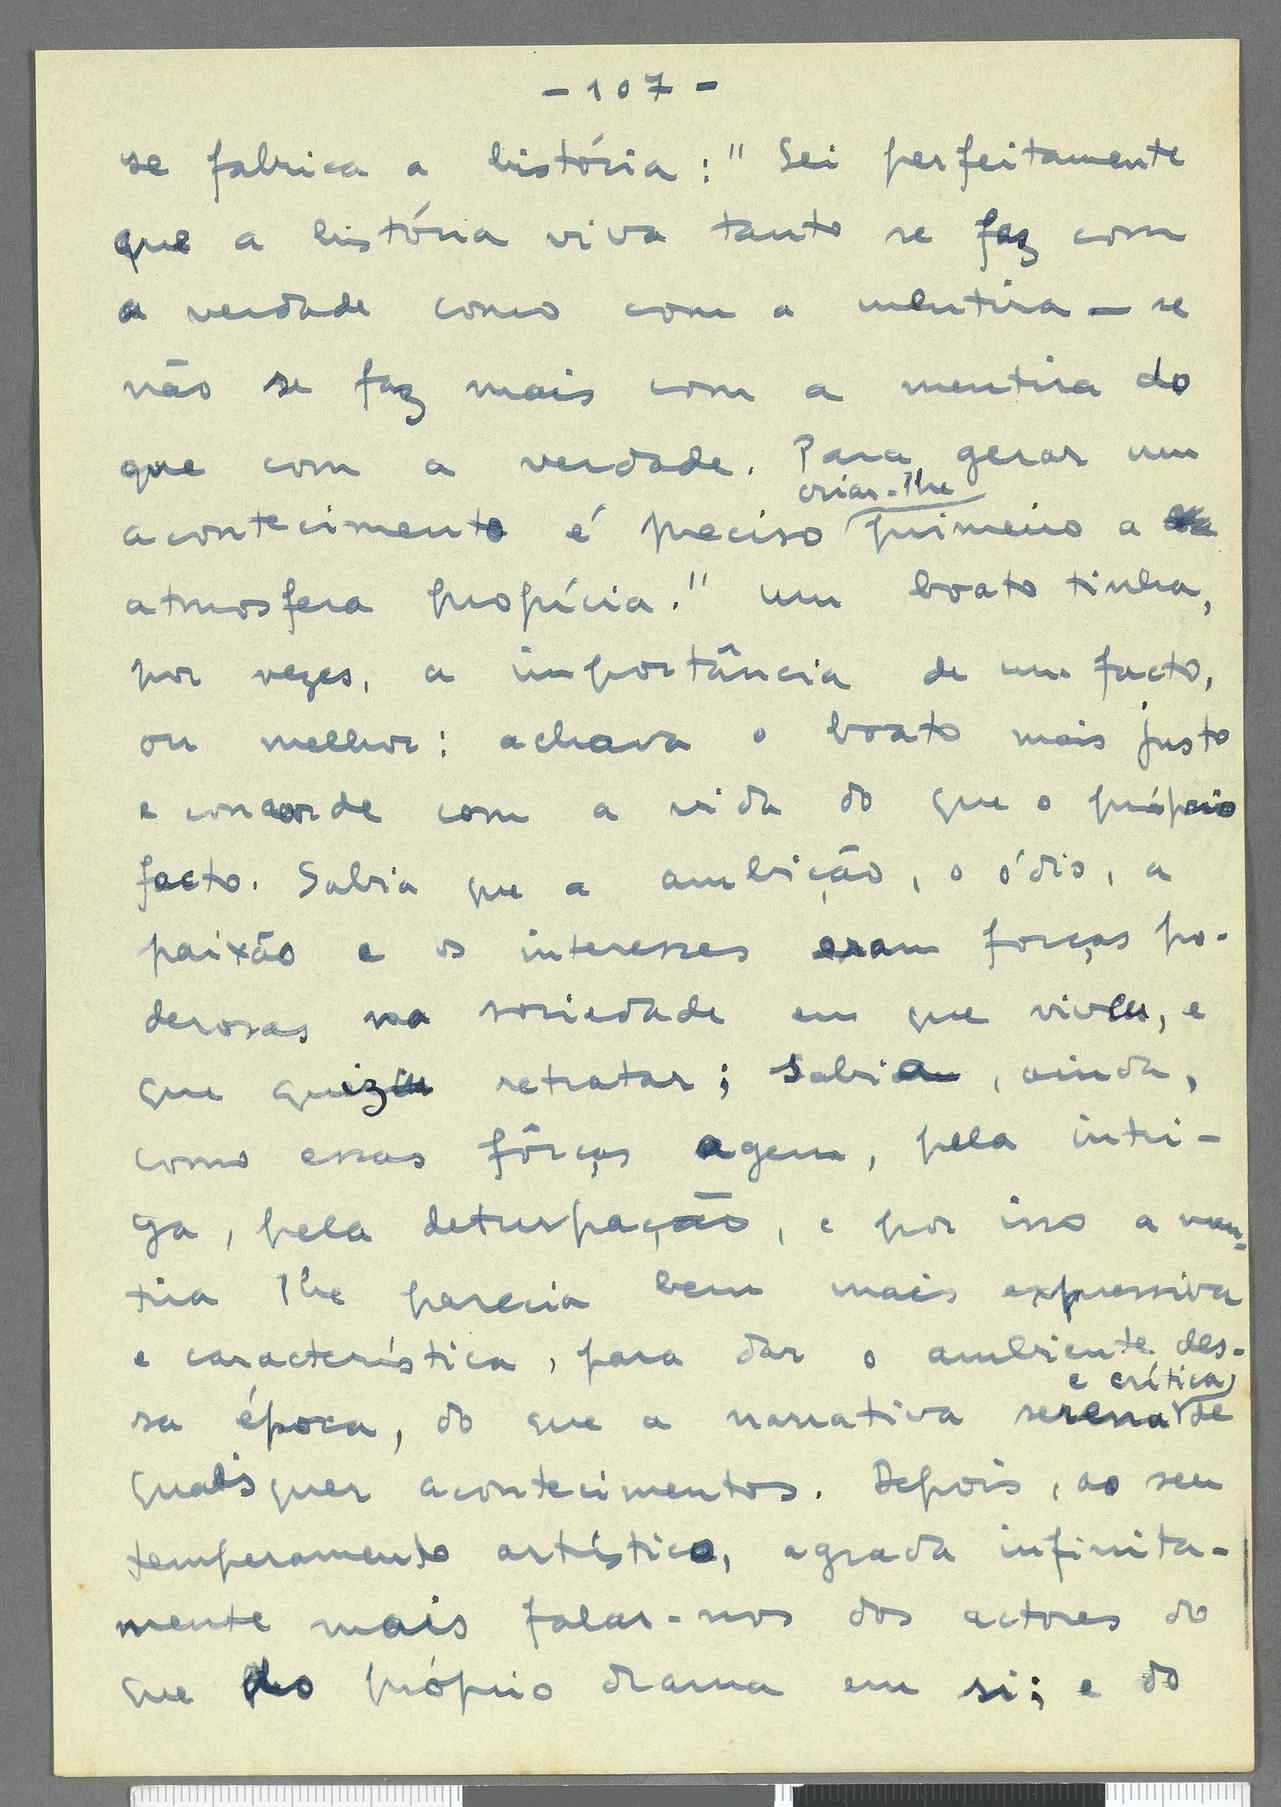 - 107 -
se fabrica a história: " Sei perfeitamente
que a história viva tanto se faz com
a verdade como com a mentira — se
não se faz mais com a mentira do
que com a verdade. Para gerar um
criar-lhe
acontecimento é preciso primeiro a
atmosfera propícia." um boato tinha,
por vezes, a importância de um facto,
ou melhor: achava o boato mais justo
e concorde com a vida do que o próprio
facto. Sabia que a ambição, o ódio, a
paixão e os interesses eram forças po-
derosas na sociedade em que viveu, e
que quiz retratar; Sabia, ainda,
como essas fôrças agem, pela intri-
ga, pela deturpação, e por isso a
tira lhe parecia bem mais expressiva
e característica, para dar o ambiente des-
e crítica
sa época, do que a narrativa serena de
quaisquer acontecimentos. Depois, ao seu
temperamento artístico, agrada infinita-
mente mais falar-nos dos actores do
que do próprio drama em si; e do